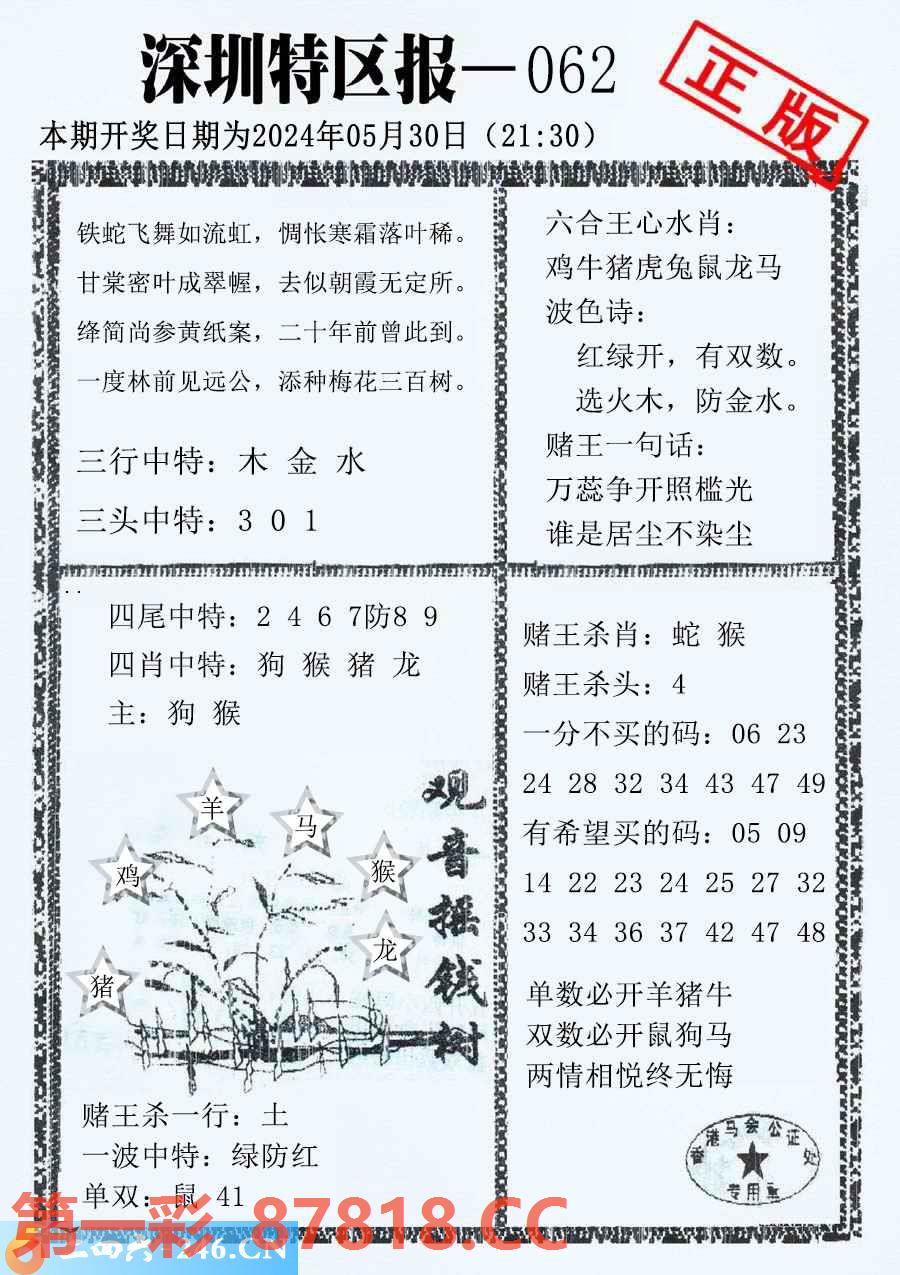 深圳特区报—062
正版
本期开奖日期为2024年05月30日（21:30）
铁蛇飞舞如流虹，惆怅寒霜落叶稀。
甘棠密叶成翠幄，去似朝霞无定所。
绛简尚参黄纸案，二十年前曾此到。
一度林前见远公，添种梅花三百树。
三行中特：木 金 水
三头中特：3 0 1
六合王心水肖：
鸡牛猪虎兔鼠龙马
波色诗：
红绿开，有双数。
选火木，防金水。
赌王一句话：
万蕊争开照槛光
谁是居尘不染尘
四尾中特：2 4 6 7防8 9
四肖中特：狗 猴 猪 龙
主：狗 猴
羊
马
鸡
猴
龙
猪
观音摇钱树
赌王杀一行：土
一波中特：绿防红
单双：鼠 41
赌王杀肖：蛇 猴
赌王杀头：4
一分不买的码：06 23
24 28 32 34 43 47 49
有希望买的码：05 09
14 22 23 24 25 27 32
33 34 36 37 42 47 48
单数必开羊猪牛
双数必开鼠狗马
两情相悦终无悔
香港马会公证处
专用章
第一彩 87818.CC
246.CN